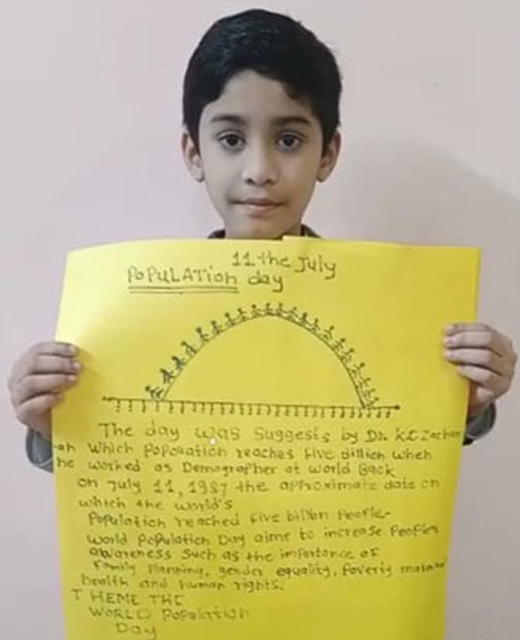 11 the July
POPULATION day
The day was Suggests by Dr. K.C Zachari
ah which Population reaches five Billion when
he worked as Demographer at world Back
on July 11, 1987 the approximate date on
which the world's
Population reached five billion People.
World Population Day aims to increase People's
awareness such as the importance of
Family Planning, gender equality, Poverty maternal
health and human rights.
THEME THE
WORLD Population
Day